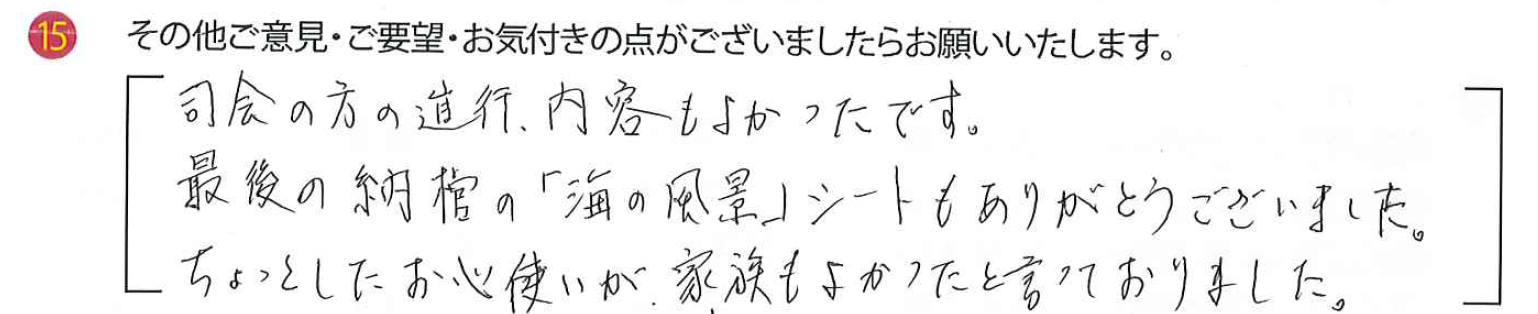 15 その他ご意見・ご要望・お気付きの点がございましたらお願いいたします。
司会の方の進行、内容もよかったです。
最後の納棺の「海の風景」シートもありがとうございました。
ちょっとしたお心使いが、家族もよかったと言っておりました。